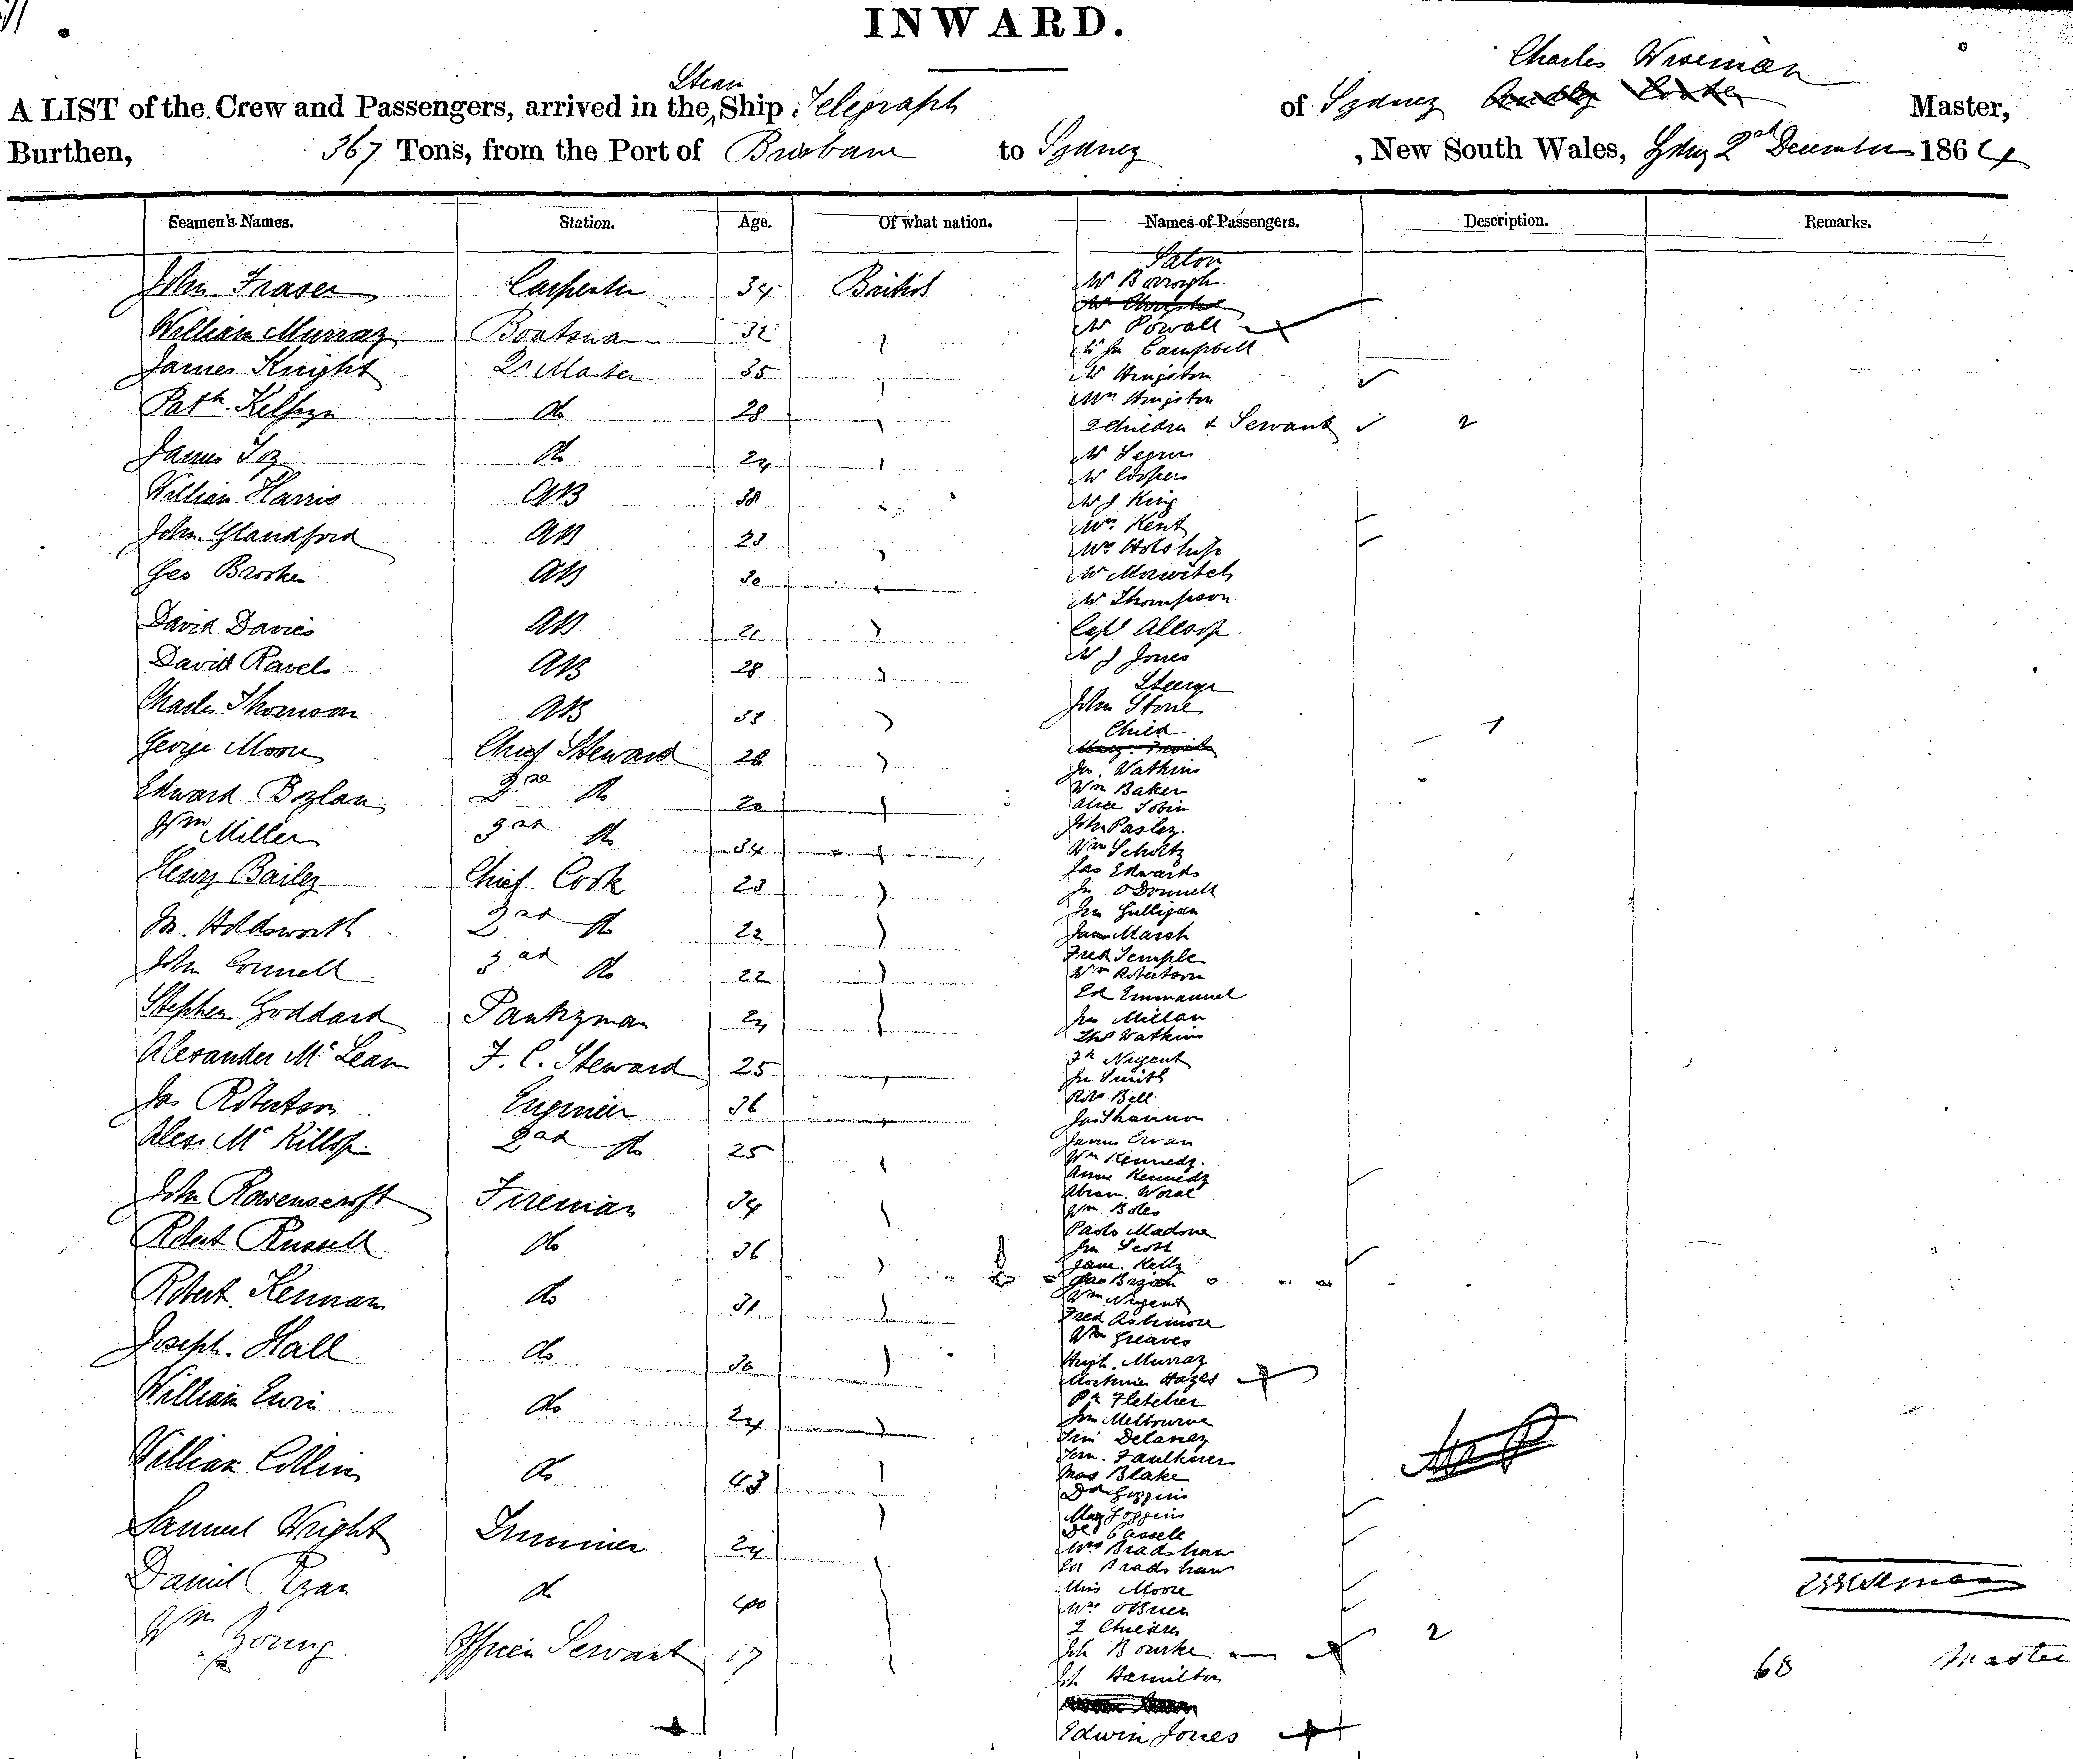 INWARD.
Charles Wiseman
Steam
A LIST of the Crew and Passengers, arrived in the Ship Telegraph of Sydney Master,
Burthen, 367 Tons, from the Port of Brisbane to Sydney , New South Wales, Sydney 2nd December 1864
Seamen's Names. Station. Age. Of what nation. Names of Passengers. Description. Remarks.
Saloon
John Fraser Carpenter 34 British Mr Borrogh
William Murray Boatswain 32 Mr Powall
Mr Jn Campbell
James Knight Qr Master 35 Mr Hingston
Patk do 28 Mrs Hingston
2 Children & Servant 2
James Foy do 24 Mr
Mr Cooper
William Harris AB 38 Mr J King
Mrs Kent
John Glandford AB 23
Geo Brooker AB 30
Mr Thompson
David Davies AB 21 Capt Allsop
David Ravel AB 28 Mr J Jones
Steerage
Charles Thomson AB 33 John Stone
Child 1
George Moore Chief Steward 28
Jn Watkins
Edward Boylan 2nd do 20 Wm Baker
Alice Tobin
Wm Miller 3rd do 34 John Pasley
Wm Schultz
Henry Bailey Chief Cook 23 Jas Edwards
Jn O Donnell
Jn. Holdsworth 2nd do 22 Jn Gulligan
James Marsh
John Connell 3rd do 22 Fred Temple
Wm Robertson
Ed Emmanuel
Stephen Goddard Pantryman 24 Jn Millan
Thos Watkins
Alexander McLean F. C. Steward 25 Nugent
Jn Smith
Jas Robertson Engineer 36 Robt Bell
Jas Shannon
Alex McKillop 2nd do 25 James
Wm Kennedy
Anne Kennedy
John Ravenscroft Fireman 34 Abram
Wm Boles
Robert Russell do 36 Paolo Madona
Jn Scott
Jane Kelly
Robert Kennan do 31 Wm Nugent
Fred Ashmore
Joseph Hall do 30 Wm Greaves
Hugh Murray
Hayes
William do 24 Fletcher
Jn Melbourne
Jas Delaney
William Collins do 43 Faulkner
Blake
Samuel Wright Trimmer 24 Mary
Cassell
Mrs Bradshaw
Daniel Ryan do 40 Bradshaw
Miss Moore
Mrs OBrien
2 Children 2
Wm Young Officers Servant 17 Bourke
Hamilton
Edwin Jones
68 Master